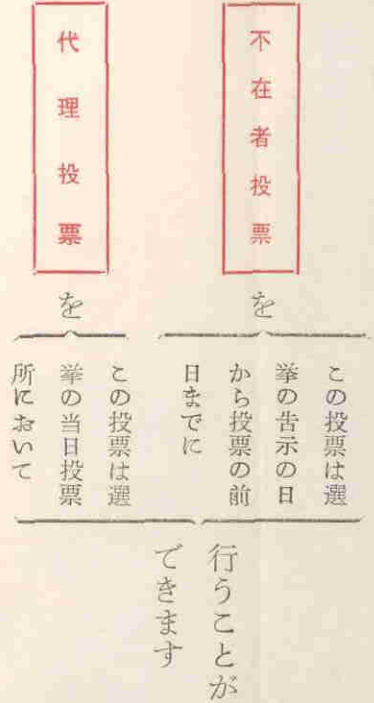 不在者投票
を
この投票は選
挙の告示の日
から投票の前
日までに
代理投票
を
この投票は選
挙の当日投票
所において
行うことが
できます